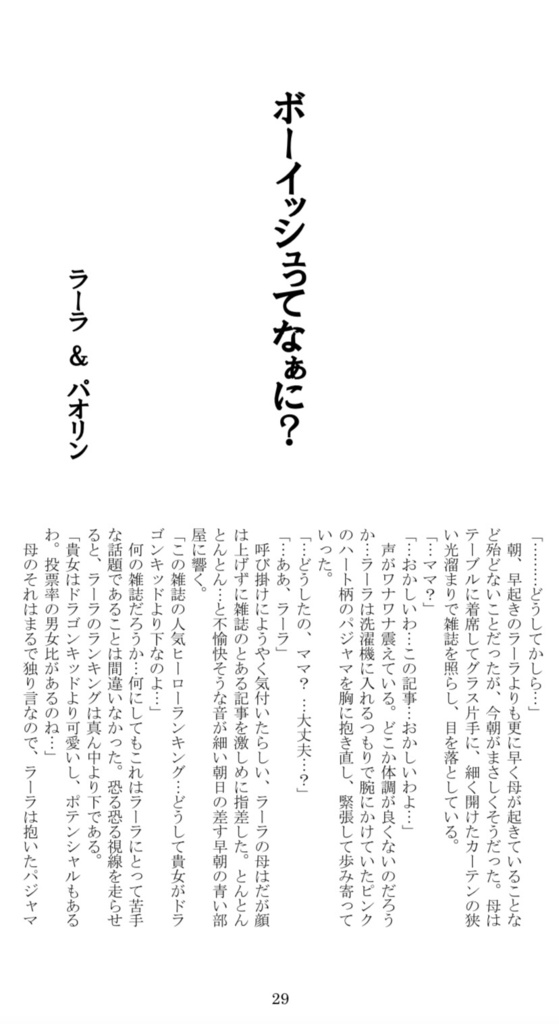 ボーイッシュってなぁに?
ラーラ & パオリン
「………どうしてかしら…」
朝、早起きのラーラよりも更に早く母が起きていることな
ど殆どないことだったが、今朝がまさしくそうだった。母は
テーブルに着席してグラス片手に、細く開けたカーテンの狭
い光溜まりで雑誌を照らし、目を落としている。
「…ママ?」
「…おかしいわ…この記事…おかしいわよ…」
声がワナワナ震えている。どこか体調が良くないのだろう
か…ラーラは洗濯機に入れるつもりで腕にかけていたピンク
のハート柄のパジャマを胸に抱き直し、緊張して歩み寄って
いった。
「…どうしたの、ママ? …大丈夫…?」
「…ああ、ラーラ」
呼び掛けにようやく気付いたらしい、ラーラの母はだが顔
は上げずに雑誌のとある記事を激しめに指差した。とんとん
とんとん…と不愉快そうな音が細い朝日の差す早朝の青い部
屋に響く。
「この雑誌の人気ヒーローランキング…どうして貴女がドラ
ゴンキッドより下なのよ…」
何の雑誌だろうか…何にしてもこれはラーラにとって苦手
な話題であることは間違いなかった。恐る恐る視線を走らせ
ると、ラーラのランキングは真ん中より下である。
「貴女はドラゴンキッドより可愛いし、ポテンシャルもある
わ。投票率の男女比があるのね…」
母のそれはまるで独り言なので、ラーラは抱いたパジャマ
29